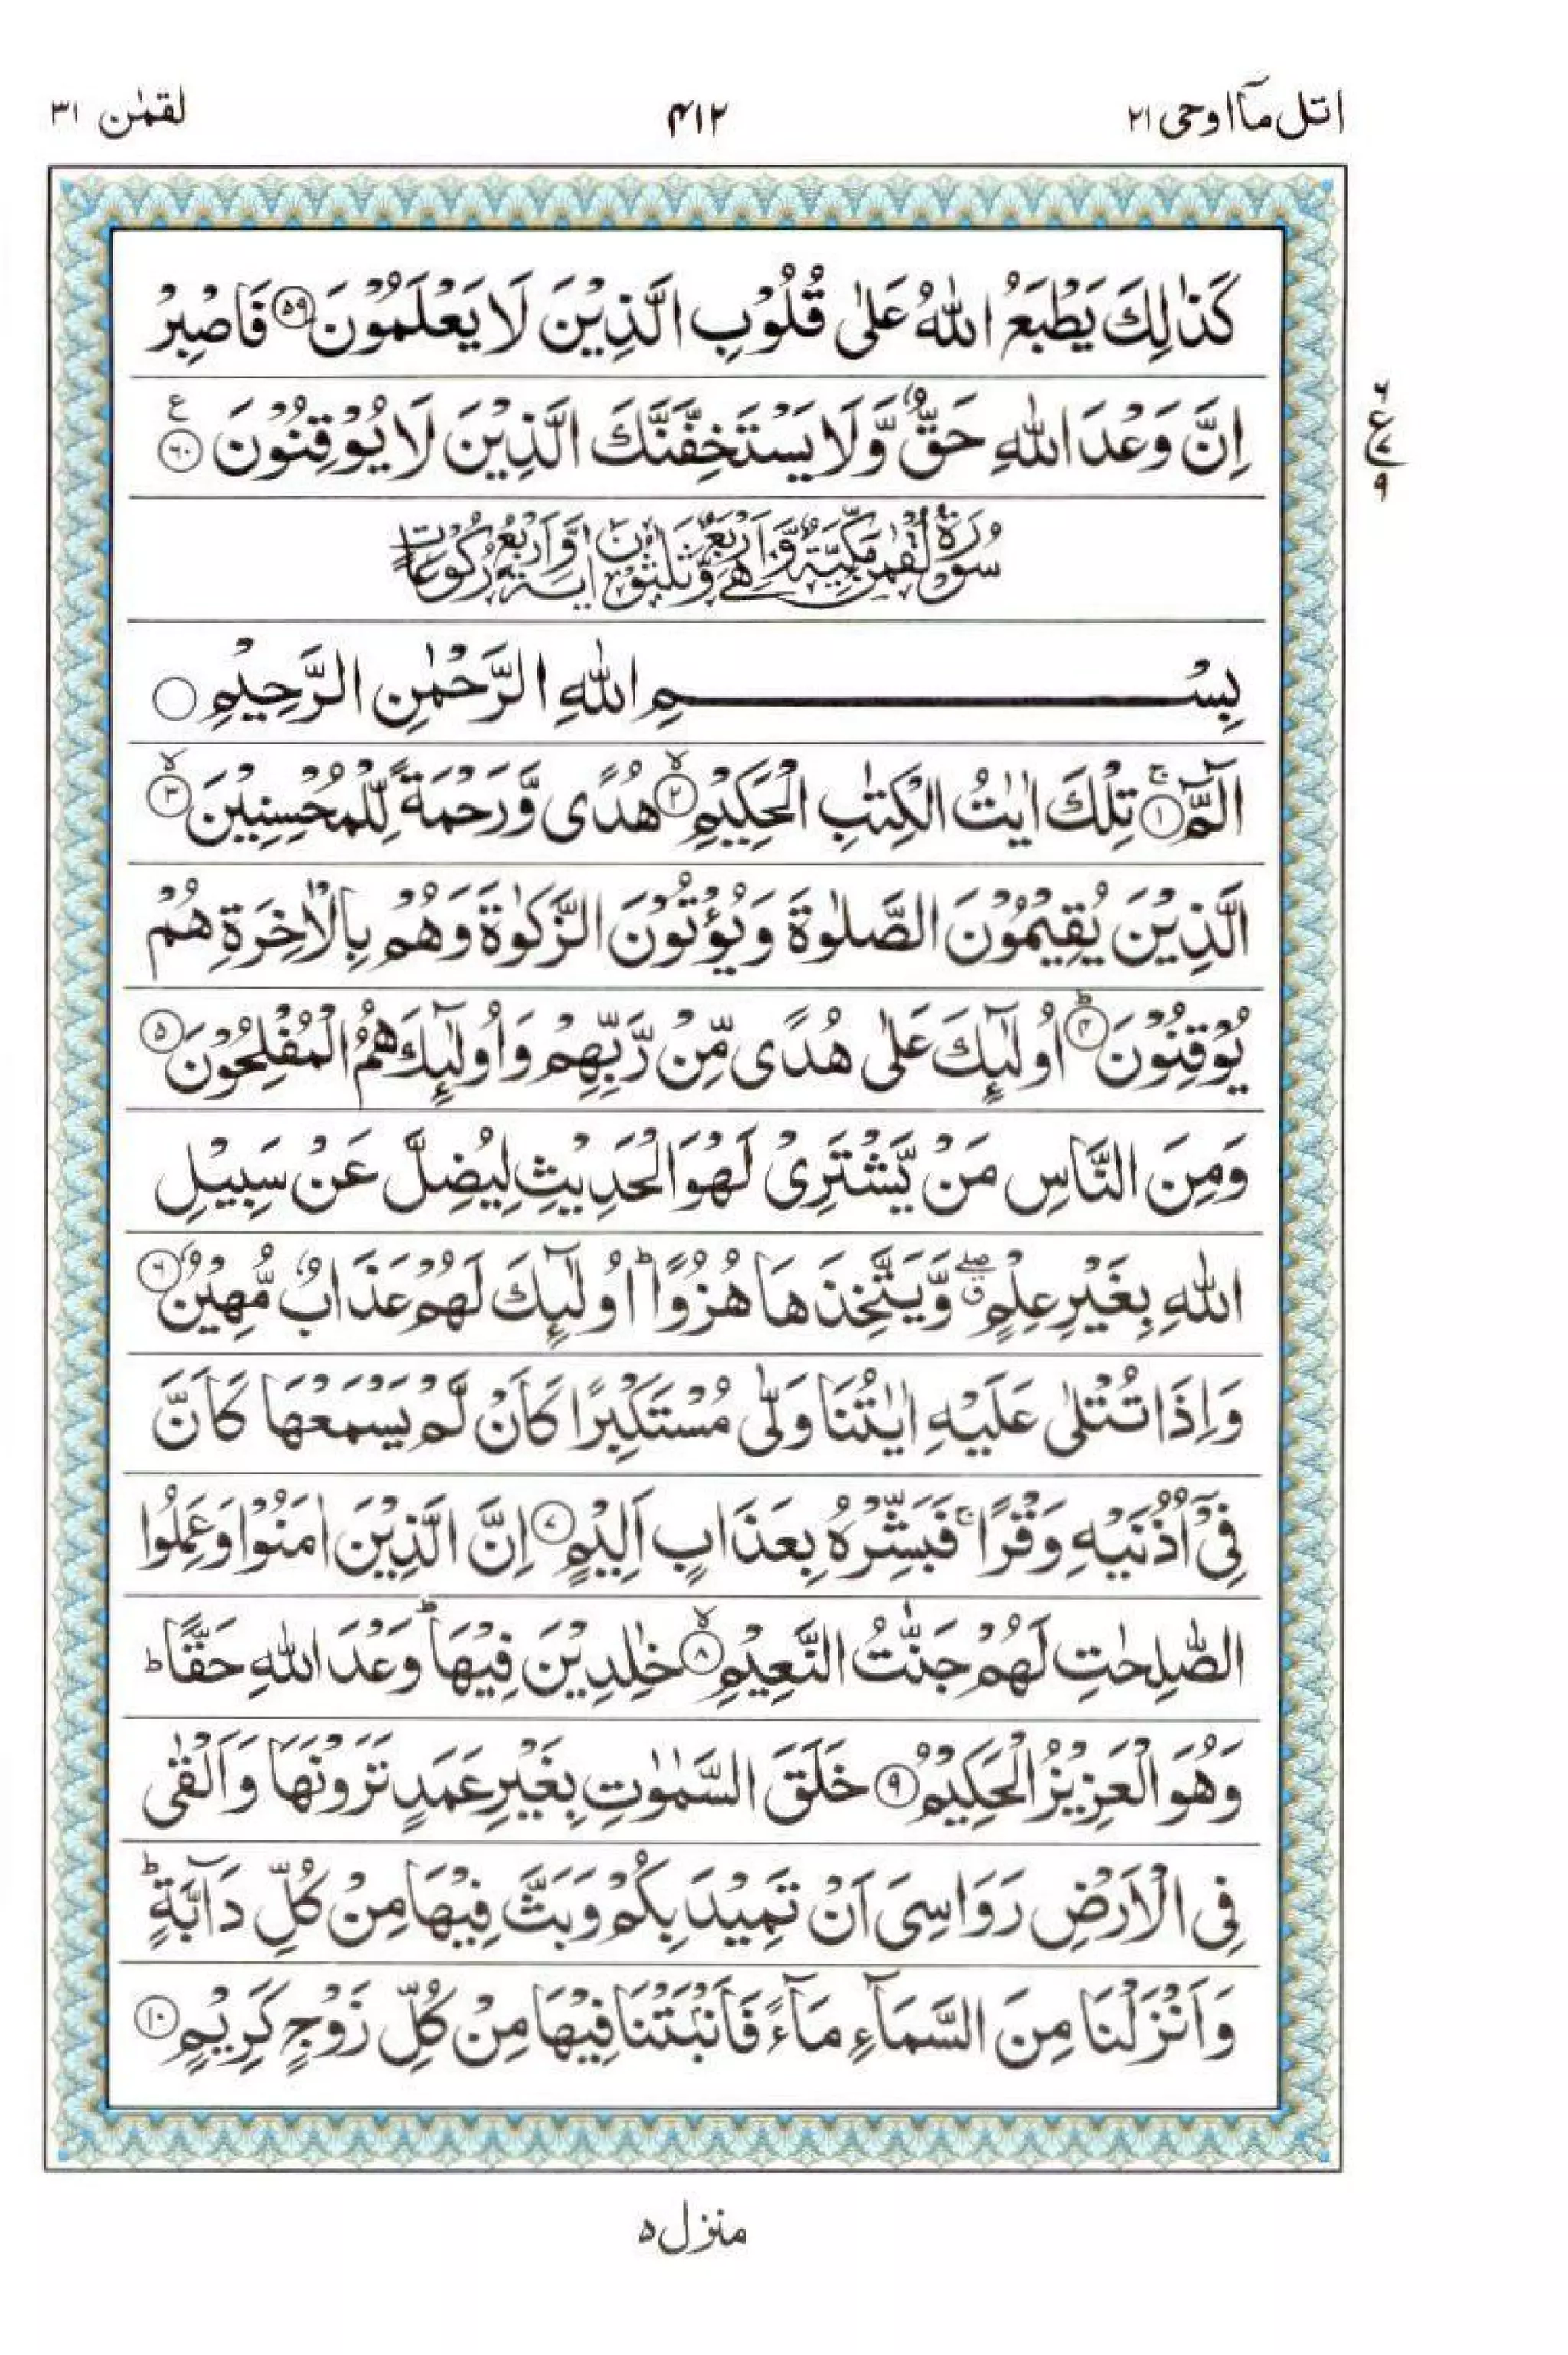 اتل مآ اوحی ۲۱
۴۱۲
لقمٰن ۳۱
كَذٰلِكَ يَطْبَعُ اللّٰهُ عَلٰى قُلُوْبِ الَّذِيْنَ لَا يَعْلَمُوْنَ ۵۹ فَاصْبِرْ
اِنَّ وَعْدَ اللّٰهِ حَقٌّ وَّلَا يَسْتَخِفَّنَّكَ الَّذِيْنَ لَا يُوْقِنُوْنَ ۶۰ ع
۶
ع
۷
۹
سُوْرَةُ لُقْمٰنَ مَكِّيَّةٌ وَّهِيَ اَرْبَعٌ وَّثَلٰثُوْنَ اٰيَةً وَّاَرْبَعُ رُكُوْعَاتٍ
بِسْمِ اللّٰهِ الرَّحْمٰنِ الرَّحِيْمِ
الٓمّٓ ۱ ۚ تِلْكَ اٰيٰتُ الْكِتٰبِ الْحَكِيْمِ ۲ ۙ هُدًى وَّرَحْمَةً لِّلْمُحْسِنِيْنَ ۳ ۙ
الَّذِيْنَ يُقِيْمُوْنَ الصَّلٰوةَ وَيُؤْتُوْنَ الزَّكٰوةَ وَهُمْ بِالْاٰخِرَةِ هُمْ
يُوْقِنُوْنَ ۴ ؕ اُولٰٓئِكَ عَلٰى هُدًى مِّنْ رَّبِّهِمْ وَاُولٰٓئِكَ هُمُ الْمُفْلِحُوْنَ ۵
وَمِنَ النَّاسِ مَنْ يَّشْتَرِىْ لَهْوَ الْحَدِيْثِ لِيُضِلَّ عَنْ سَبِيْلِ
اللّٰهِ بِغَيْرِ عِلْمٍ ۖ ق وَّيَتَّخِذَهَا هُزُوًا ؕ اُولٰٓئِكَ لَهُمْ عَذَابٌ مُّهِيْنٌ ۶
وَاِذَا تُتْلٰى عَلَيْهِ اٰيٰتُنَا وَلّٰى مُسْتَكْبِرًا كَاَنْ لَّمْ يَسْمَعْهَا كَاَنَّ
فِىْٓ اُذُنَيْهِ وَقْرًا ۚ فَبَشِّرْهُ بِعَذَابٍ اَلِيْمٍ ۷ اِنَّ الَّذِيْنَ اٰمَنُوْا وَعَمِلُوا
الصّٰلِحٰتِ لَهُمْ جَنّٰتُ النَّعِيْمِ ۸ ۙ خٰلِدِيْنَ فِيْهَا ؕ وَعْدَ اللّٰهِ حَقًّا ؕ
وَهُوَ الْعَزِيْزُ الْحَكِيْمُ ۹ خَلَقَ السَّمٰوٰتِ بِغَيْرِ عَمَدٍ تَرَوْنَهَا وَاَلْقٰى
فِى الْاَرْضِ رَوَاسِىَ اَنْ تَمِيْدَ بِكُمْ وَبَثَّ فِيْهَا مِنْ كُلِّ دَآبَّةٍ ؕ
وَاَنْزَلْنَا مِنَ السَّمَآءِ مَآءً فَاَنْۢبَتْنَا فِيْهَا مِنْ كُلِّ زَوْجٍ كَرِيْمٍ ۱۰
منزل ۵